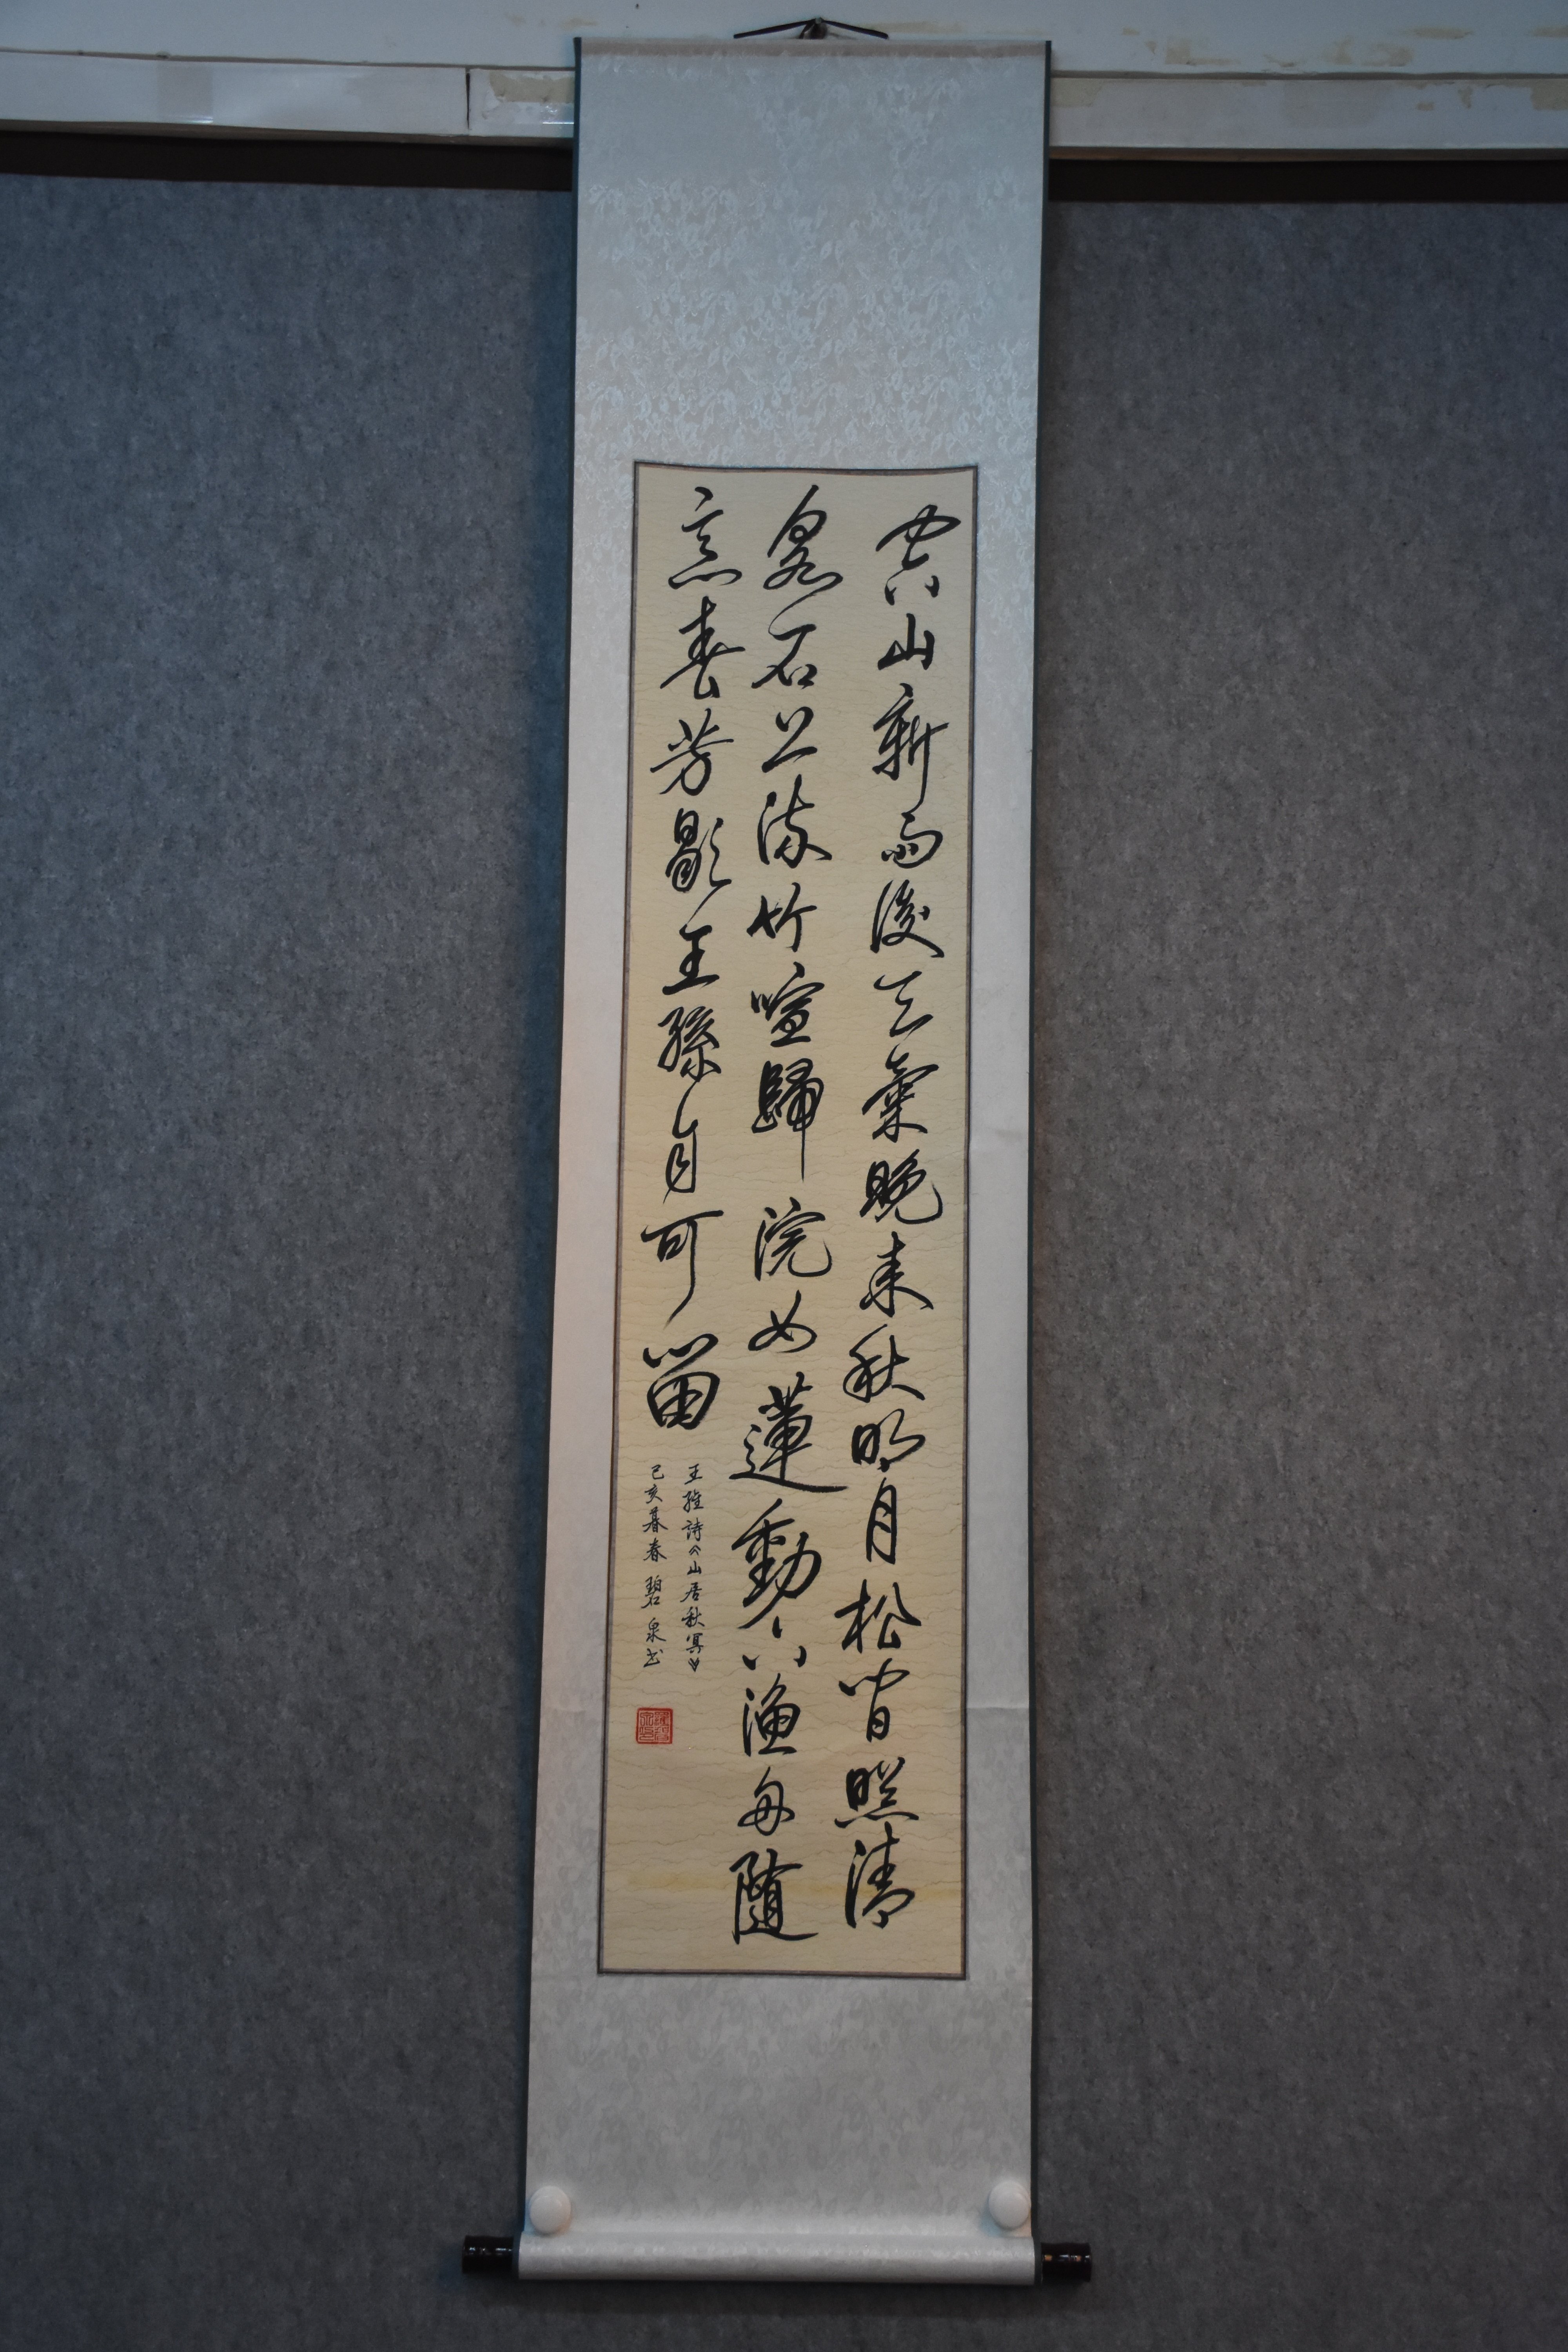 空山新雨後天氣晚来秋明月松間照清
泉石上流竹喧歸浣女蓮動下漁舟随
意春芳歇王孫自可留
王維詩《山居秋冥》
己亥暮春 碧泉书